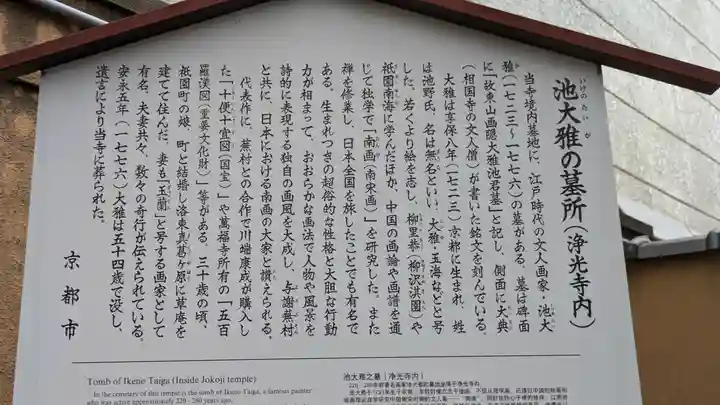 池大雅の墓所(浄光寺内)
いけのたいが
当寺境内墓地に、江戸時代の文人画家・池大
雅(一七二三~一七七六)の墓がある。墓は碑面
に「故東山画隠大雅池君墓」と記し、側面に大典
(相国寺の文人僧)が書いた銘文を刻んでいる。
大雅は享保八年(一七二三)京都に生まれ、姓
は池野氏、名は無名といい、大雅・玉海などと号
した。若くより絵を志し、柳里恭(柳沢淇園)や
祇園南海に学んだほか、中国の画論や画譜を通
じて独学で「南画(南宋画)」を研究した。また
禅を修業し、日本全国を旅したことでも有名で
ある。生まれつきの超俗的な性格と大胆な行動
力が相まって、おおらかな画法で人物や風景を
詩的に表現する独自の画風を大成し、与謝蕪村
と共に、日本における南画の大家と讃えられる。
代表作に、蕪村との合作で川端康成が購入し
た「十便十宜図(国宝)」や萬福寺所有の「五百
羅漢図(重要文化財)」等がある。三十歳の頃、
祇園町の娘、町と結婚し洛東真葛ケ原に草庵を
建てて住んだ。妻も「玉蘭」と号する画家として
有名。夫妻共々、数々の奇行が伝えられている。
安永五年(一七七六)大雅は五十四歳で没し、
遺言により当寺に葬られた。
京都市
Tomb of Ikeno Taiga (Inside Jokoji temple)
In the cemetery of this temple is the tomb of Ikeno Taiga, a famous painter
who was active approximately 220 - 260 years ago.
池大雅之墓(浄光寺内)